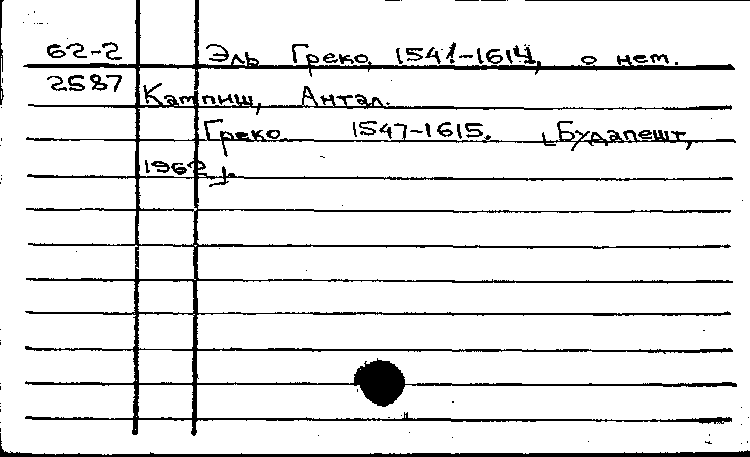 62-2 Эль Греко. 1541-1614, о нем.
2587 Кампиш, Антал.
Греко. 1547-1615. [Будапешт,
1962].